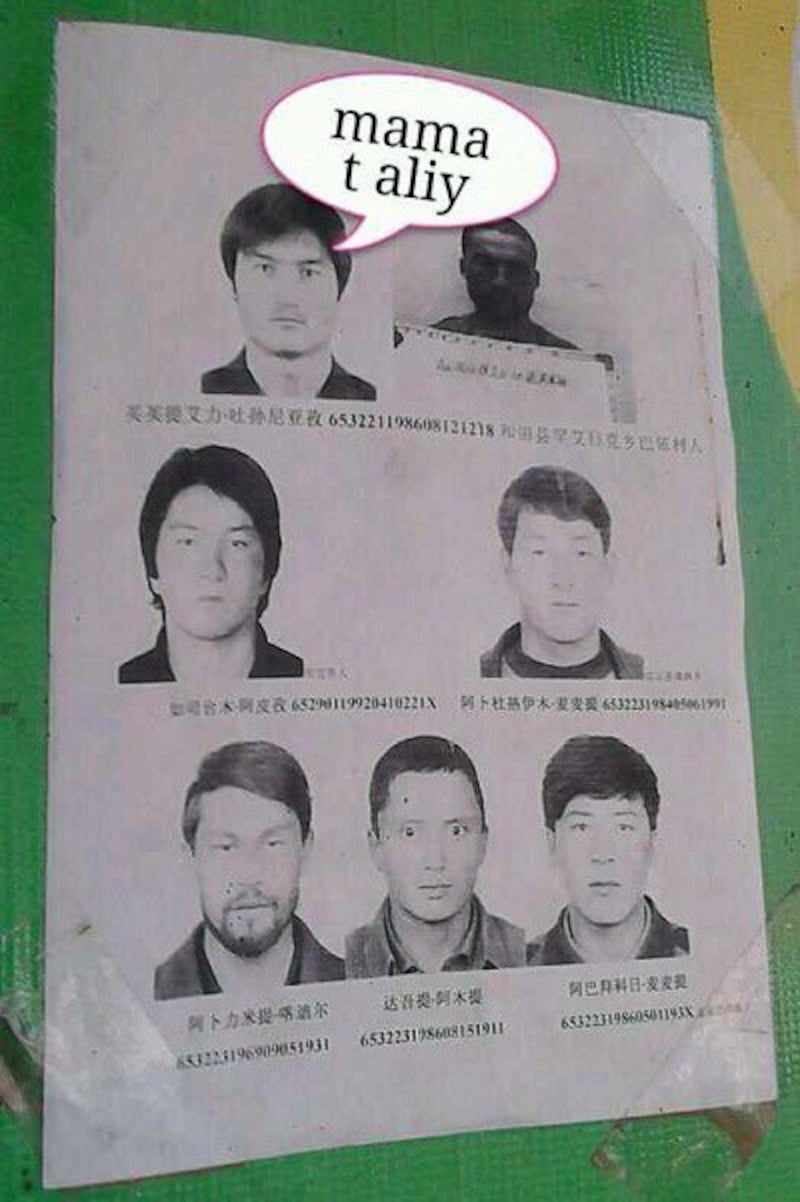 mama
t aliy
买买提艾力·吐孙尼亚孜 653221198608121218 和田县罕艾日克乡巴依利人
如司台木·阿皮孜 65290119920410221X 阿卜杜热伊木·麦麦提 653223198405061991
阿卜力米提·喀迪尔 达吾提·阿木提 阿巴拜科日·麦麦提
653223196909051931 653223198608151911 65322319860501193X